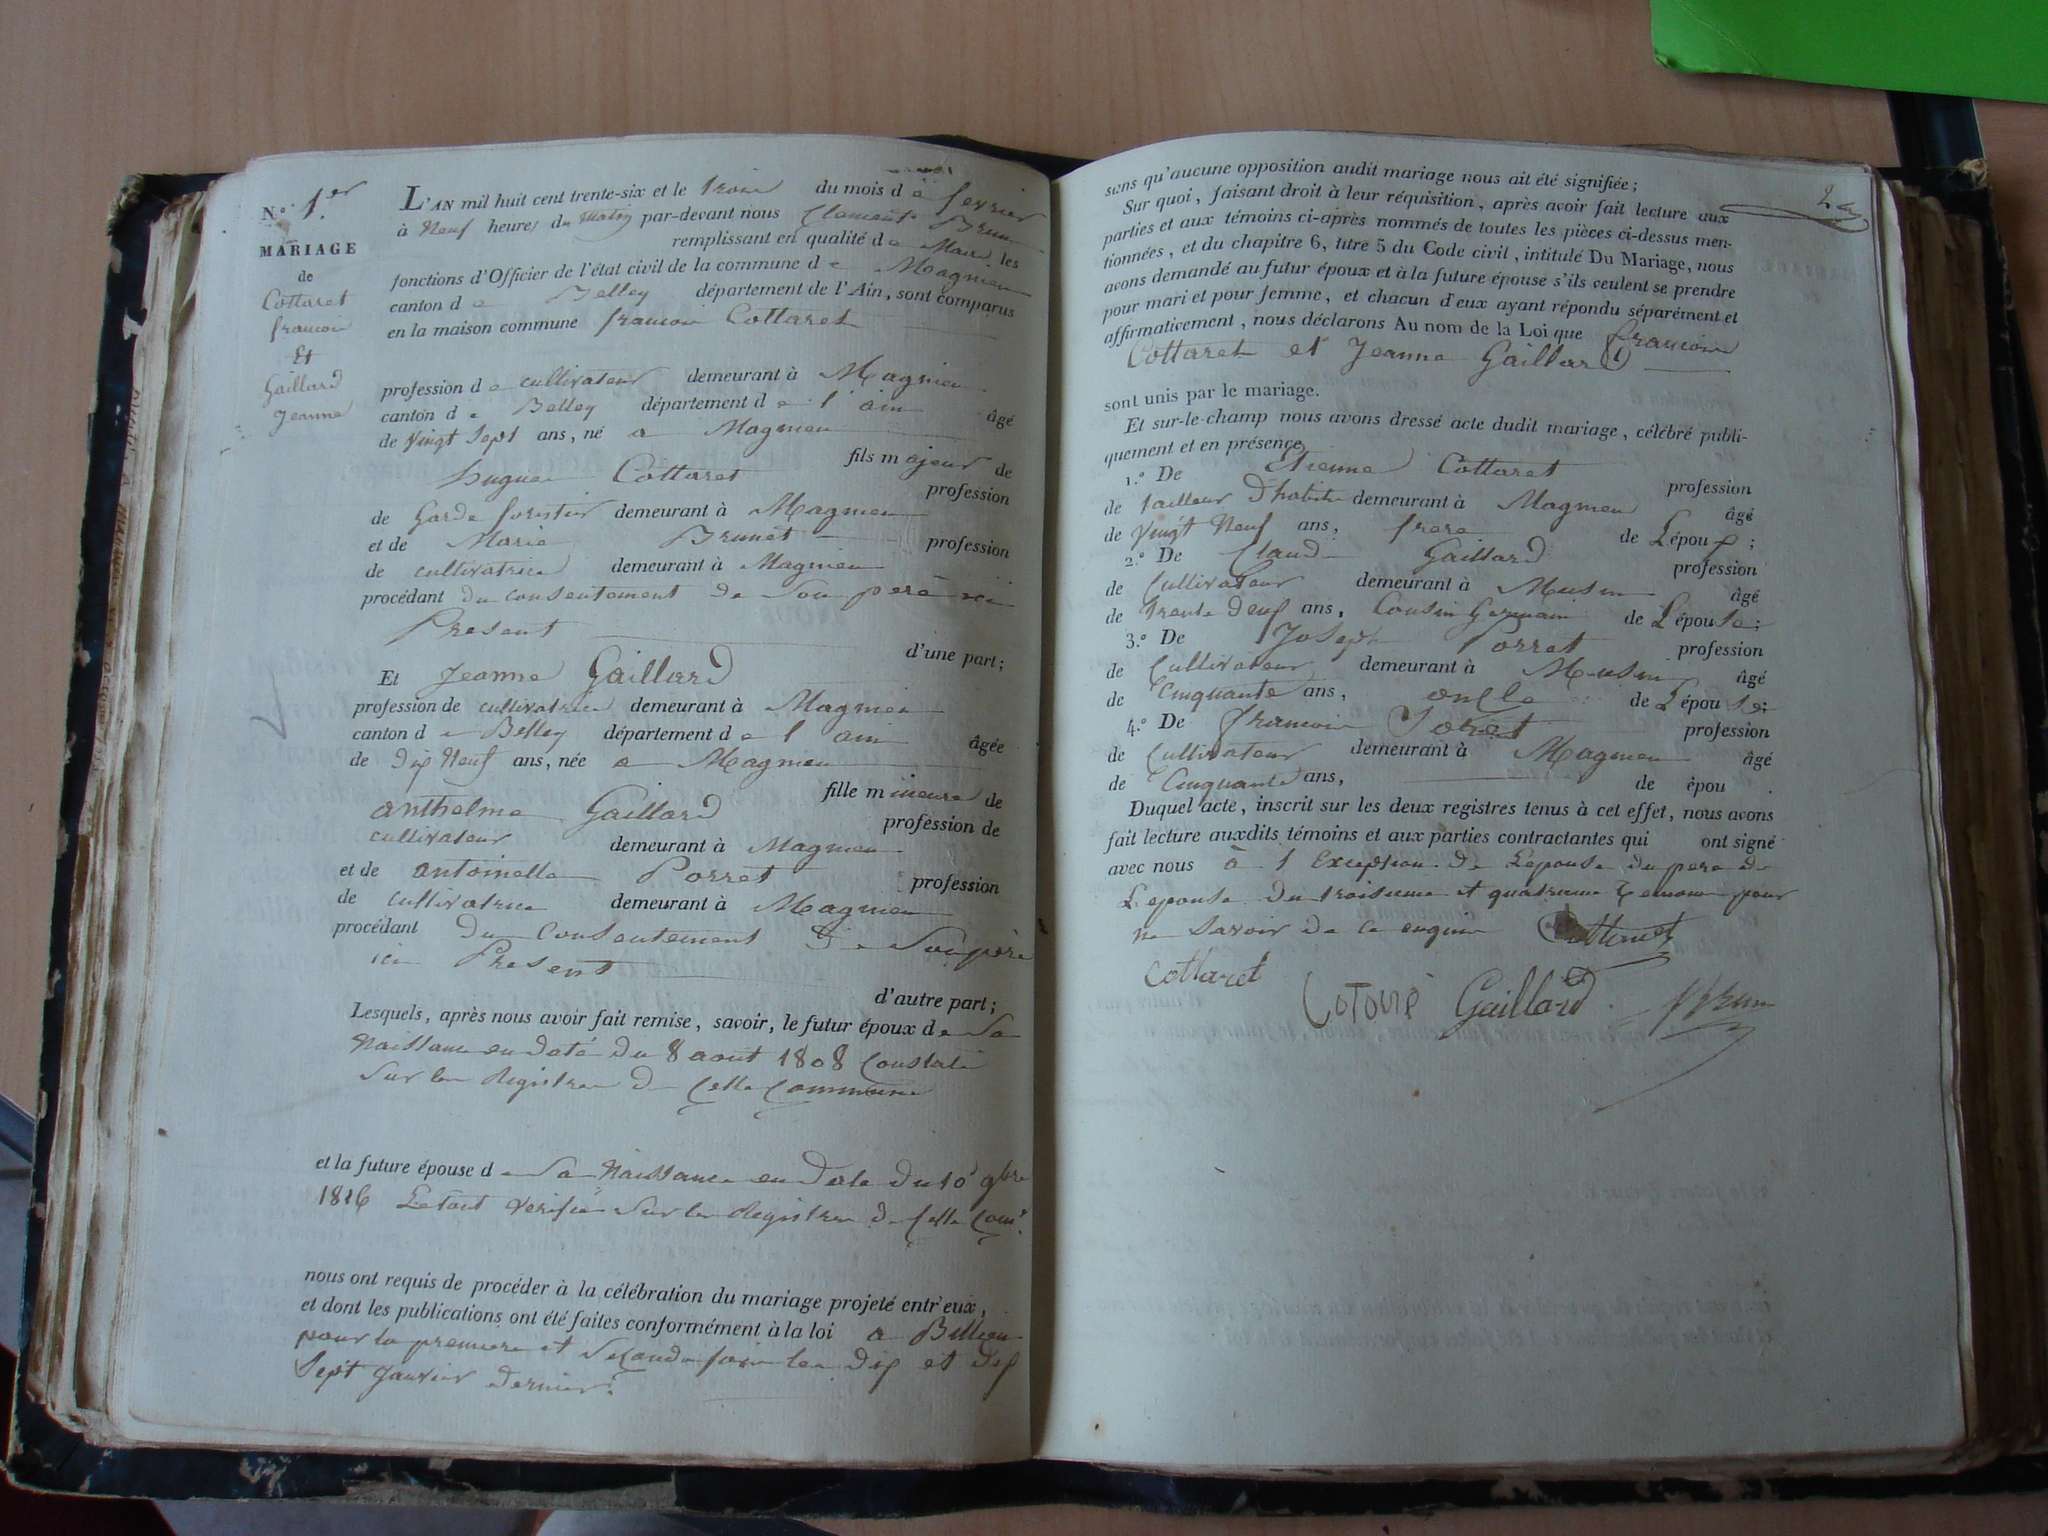 N.º 1.er
MARIAGE
de
Cottaret
francois
Et
Gaillard
Jeanne
L'AN mil huit cent trente-six et le trois du mois de fevrier
à Neuf heures du matin par-devant nous Clement Brun
remplissant en qualité de Maire les
fonctions d'Officier de l'état civil de la commune de Magnieu
canton de Belley département de l'Ain, sont comparus
en la maison commune francois Cottaret
profession de cultivateur demeurant à Magnieu
canton de Belley département de l'ain âgé
de Vingt Sept ans, né a Magnieu
fils majeur de
hugues Cottaret profession
de Garde forestier demeurant à Magnieu
et de Marie Brunet profession
de cultivatrice demeurant à Magnieu
procédant du consentement de Son père ici
Present
d'une part;
Et Jeanne Gaillard
profession de cultivatrice demeurant à Magnieu
canton de Belley département de l'ain âgée
de dix Neuf ans, née a Magnieu
fille mineure de
anthelme Gaillard profession de
cultivateur demeurant à Magnieu
et de antoinette Porret profession
de cultivatrice demeurant à Magnieu
procédant du Consentement de Son père
ici Present
d'autre part;
Lesquels, après nous avoir fait remise, savoir, le futur époux de Sa
Naissance en date du 8 aout 1808 Constaté
Sur les Registres de Cette Commune
et la future épouse de Sa Naissance en date du 10 9bre
1816 Le tout Verifié Sur les Registres de Cette Com.e
nous ont requis de procéder à la célébration du mariage projeté entr'eux,
et dont les publications ont été faites conformément à la loi a
pour la premiere et Seconde fois les dix et dix
Sept Janvier dernier.
2
sans qu'aucune opposition audit mariage nous ait été signifiée;
Sur quoi, faisant droit à leur réquisition, après avoir fait lecture aux
parties et aux témoins ci-après nommés de toutes les pièces ci-dessus men-
tionnées, et du chapitre 6, titre 5 du Code civil, intitulé Du Mariage, nous
avons demandé au futur époux et à la future épouse s'ils veulent se prendre
pour mari et pour femme, et chacun d'eux ayant répondu séparément et
affirmativement, nous déclarons Au nom de la Loi que francois
Cottaret et Jeanne Gaillard
sont unis par le mariage.
Et sur-le-champ nous avons dressé acte dudit mariage, célébré publi-
quement et en présence
1.º De Etienne Cottaret profession
de tailleur D'habits demeurant à Magnieu âgé
de Vingt Neuf ans, frere de L'époux;
2.º De Claude Gaillard profession
de Cultivateur demeurant à Musin âgé
de trente deux ans, Cousin Germain de L'épouse;
3.º De Joseph Porret profession
de Cultivateur demeurant à Musin âgé
de Cinquante ans, oncle de L'épouse;
4.º De francois profession
de Cultivateur demeurant à Magnieu âgé
de Cinquante ans, de épou .
Duquel acte, inscrit sur les deux registres tenus à cet effet, nous avons
fait lecture auxdits témoins et aux parties contractantes qui ont signé
avec nous à l'Exception de L'epouse du pere de
L'epouse du troisieme et quatrieme temoin pour
ne Savoir de ce enquis
Cottaret
Gaillard Brun